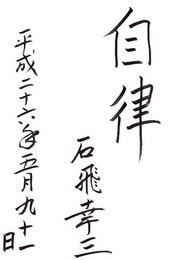 自律
石飛幸三
平成二十六年五月九十一日